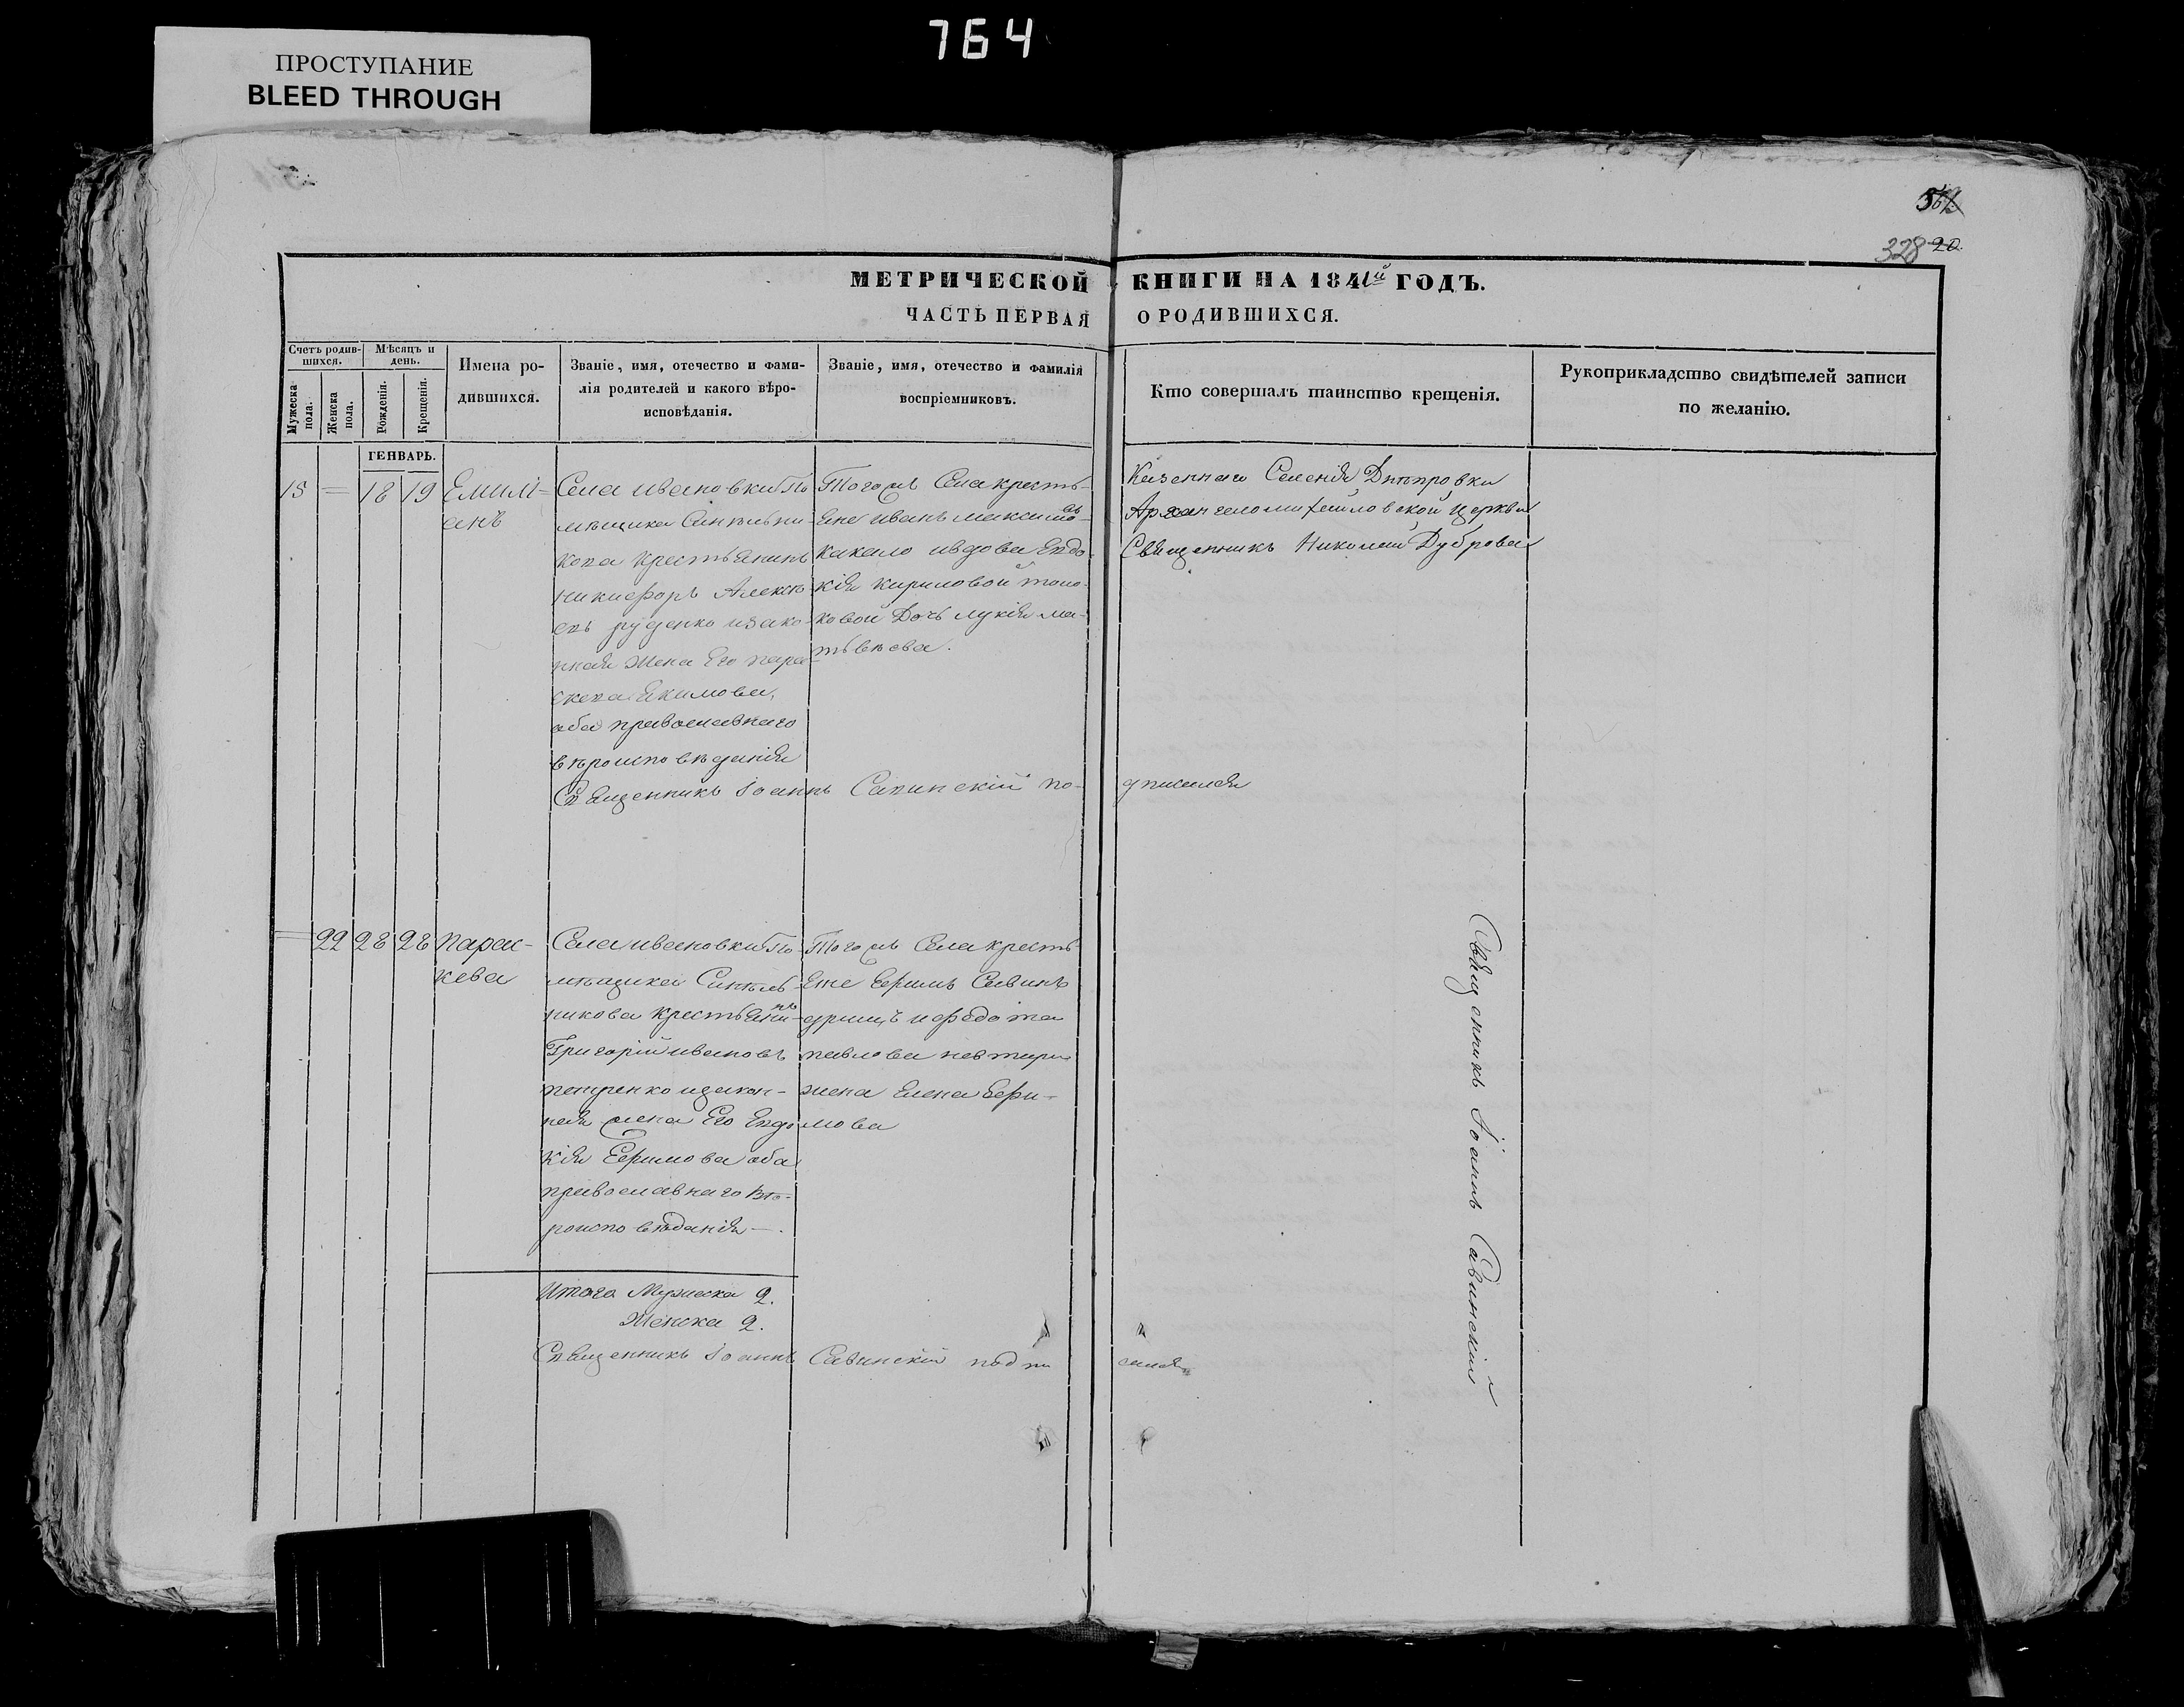 764
ПРОСТУПАНИЕ
BLEED THROUGH
328 20.
МЕТРИЧЕСКОЙ КНИГИ НА 1841й ГОДЪ.
ЧАСТЬ ПЕРВАЯ О РОДИВШИХСЯ.
Счетъ родив-
шихся.
Мужеска пола.
Женска пола.
Мѣсяцъ и
день.
Рожденія.
Крещенія.
Имена ро-
дившихся.
Званіе, имя, отечество и фами-
лія родителей и какого вѣро-
исповѣданія.
Званіе, имя, отечество и фамилія
воспріемниковъ.
Кто совершалъ таинство крещенія.
Рукоприкладство свидѣтелей записи
по желанію.
ГЕНВАРЬ.
15 = 18 19
Емилі=
анъ
Села Ивановки По
мѣщика Синѣльни-
кова Крестьянинъ
Никифоръ Алексѣ
евъ Руденко изако
нная Жена Его пара
скева Екимова,
оба православнаго
вѣроисповѣданія
Того жъ Села кресть-
яне Иванъ Максимовъ
какало ивдова Евдо-
кія Кириловой
ковой Дочь Лукія Ма-
тѣвѣева.
Казеннаго Селенія Днѣпровки
Архангеломихайловской Церкви
Священникъ Николай Дуброва
Священникъ Іоаннъ Савинскій подписался
= 22 28 28
Парас-
кева
Села Ивановки По
мѣщика Синѣль-
никова Крестьянинъ
Григорій Ивановъ
Петренко изакон-
ная жена Его Евдо
кія Ефимова оба
православнаго вѣ-
роисповѣданія —.
Того жъ Села кресть
яне Ефимъ Савинъ
ифедота
Павлова
жена Елена Ефи-
мова
Священникъ Іоаннъ Савинскій
Итого Мужеска 2.
Женска 2.
Священникъ Іоаннъ Савинскій подписался